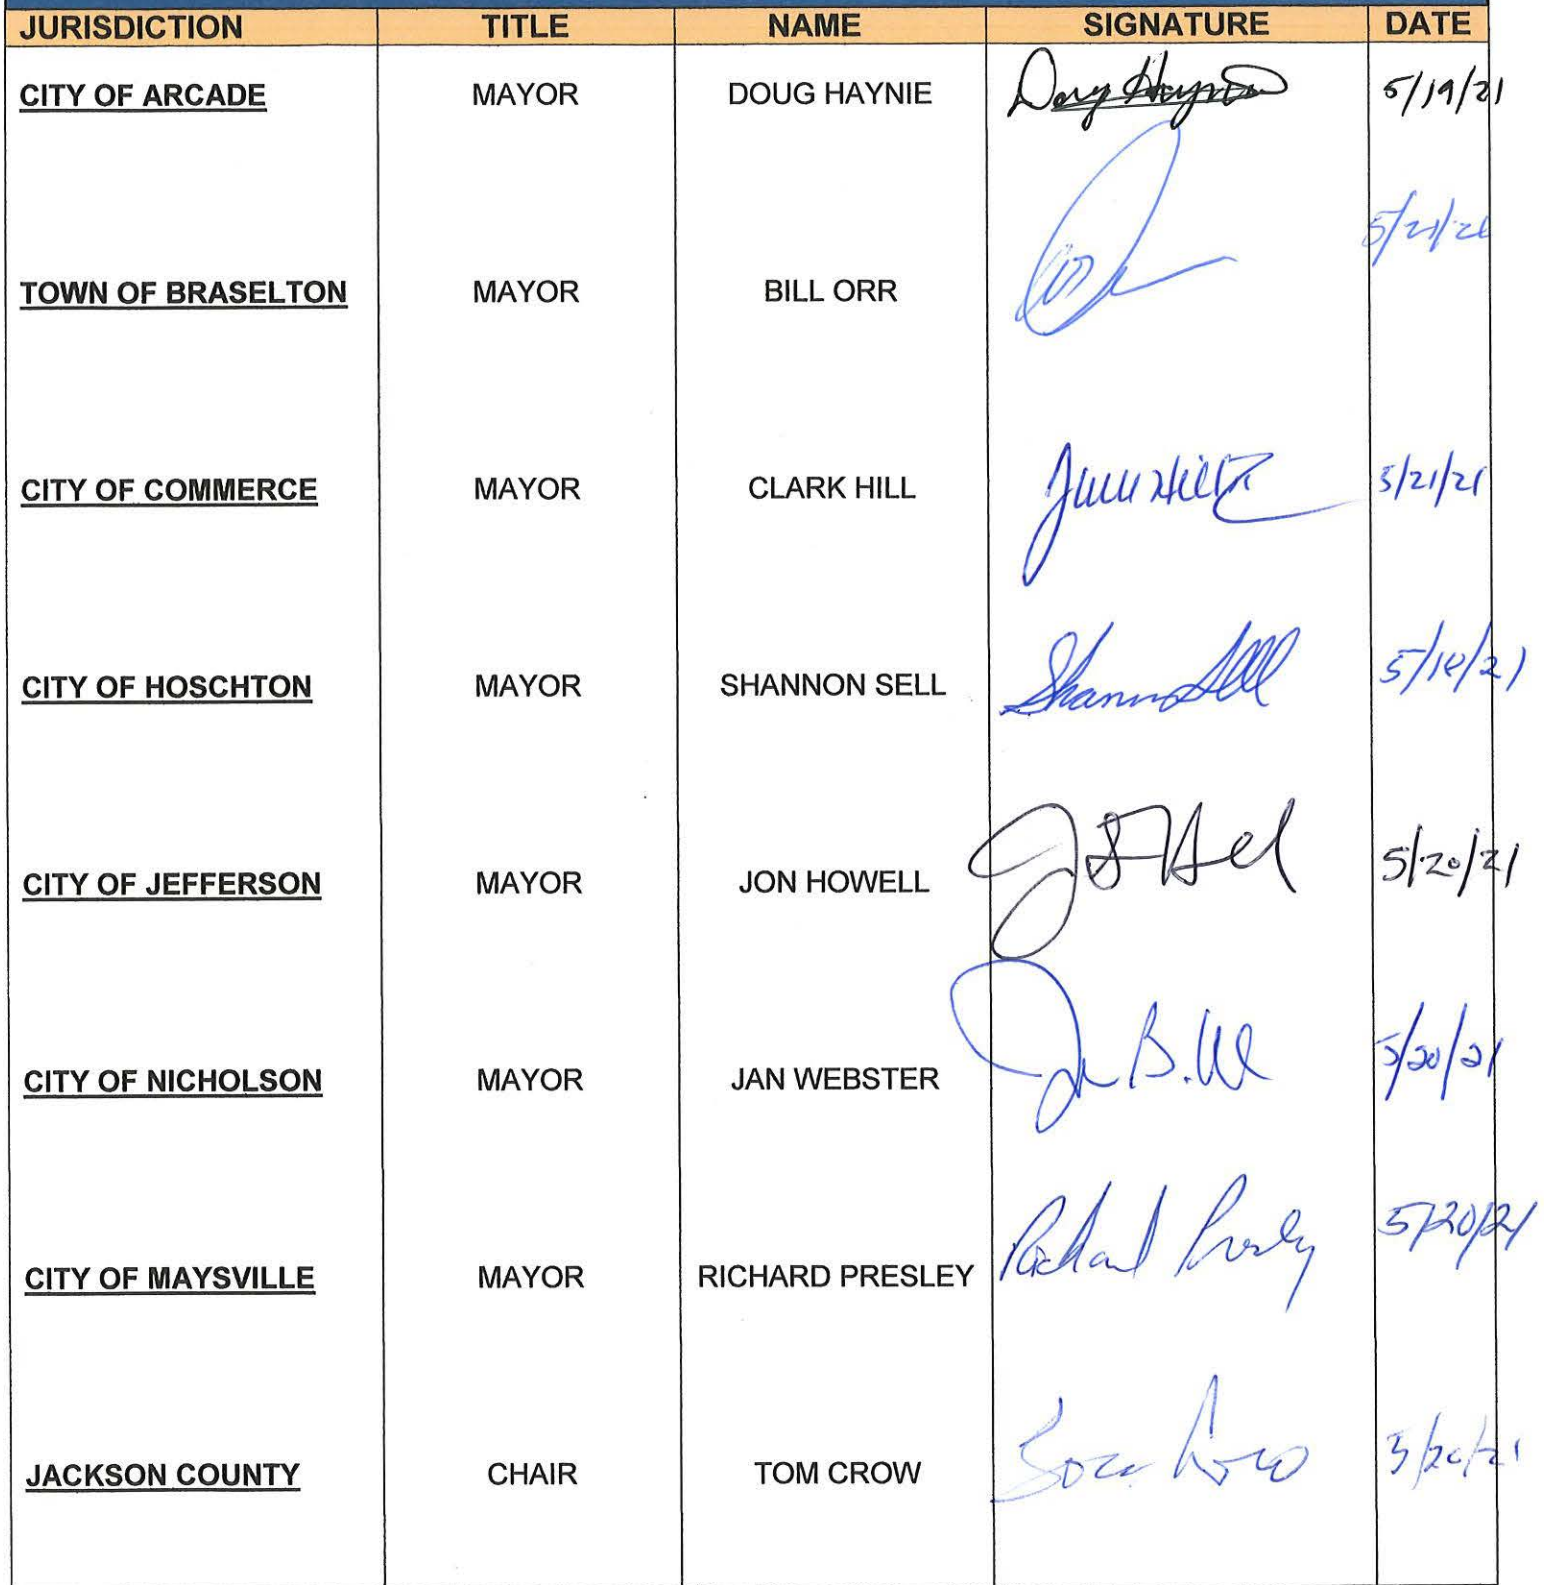 JURISDICTION TITLE NAME SIGNATURE DATE
CITY OF ARCADE MAYOR DOUG HAYNIE Doug Haynie 5/19/21
TOWN OF BRASELTON MAYOR BILL ORR 5/21/21
CITY OF COMMERCE MAYOR CLARK HILL 5/21/21
CITY OF HOSCHTON MAYOR SHANNON SELL Shannon Sell 5/18/21
CITY OF JEFFERSON MAYOR JON HOWELL 5/20/21
CITY OF NICHOLSON MAYOR JAN WEBSTER 5/20/21
CITY OF MAYSVILLE MAYOR RICHARD PRESLEY Richard Presley 5/20/21
JACKSON COUNTY CHAIR TOM CROW Tom Crow 5/20/21